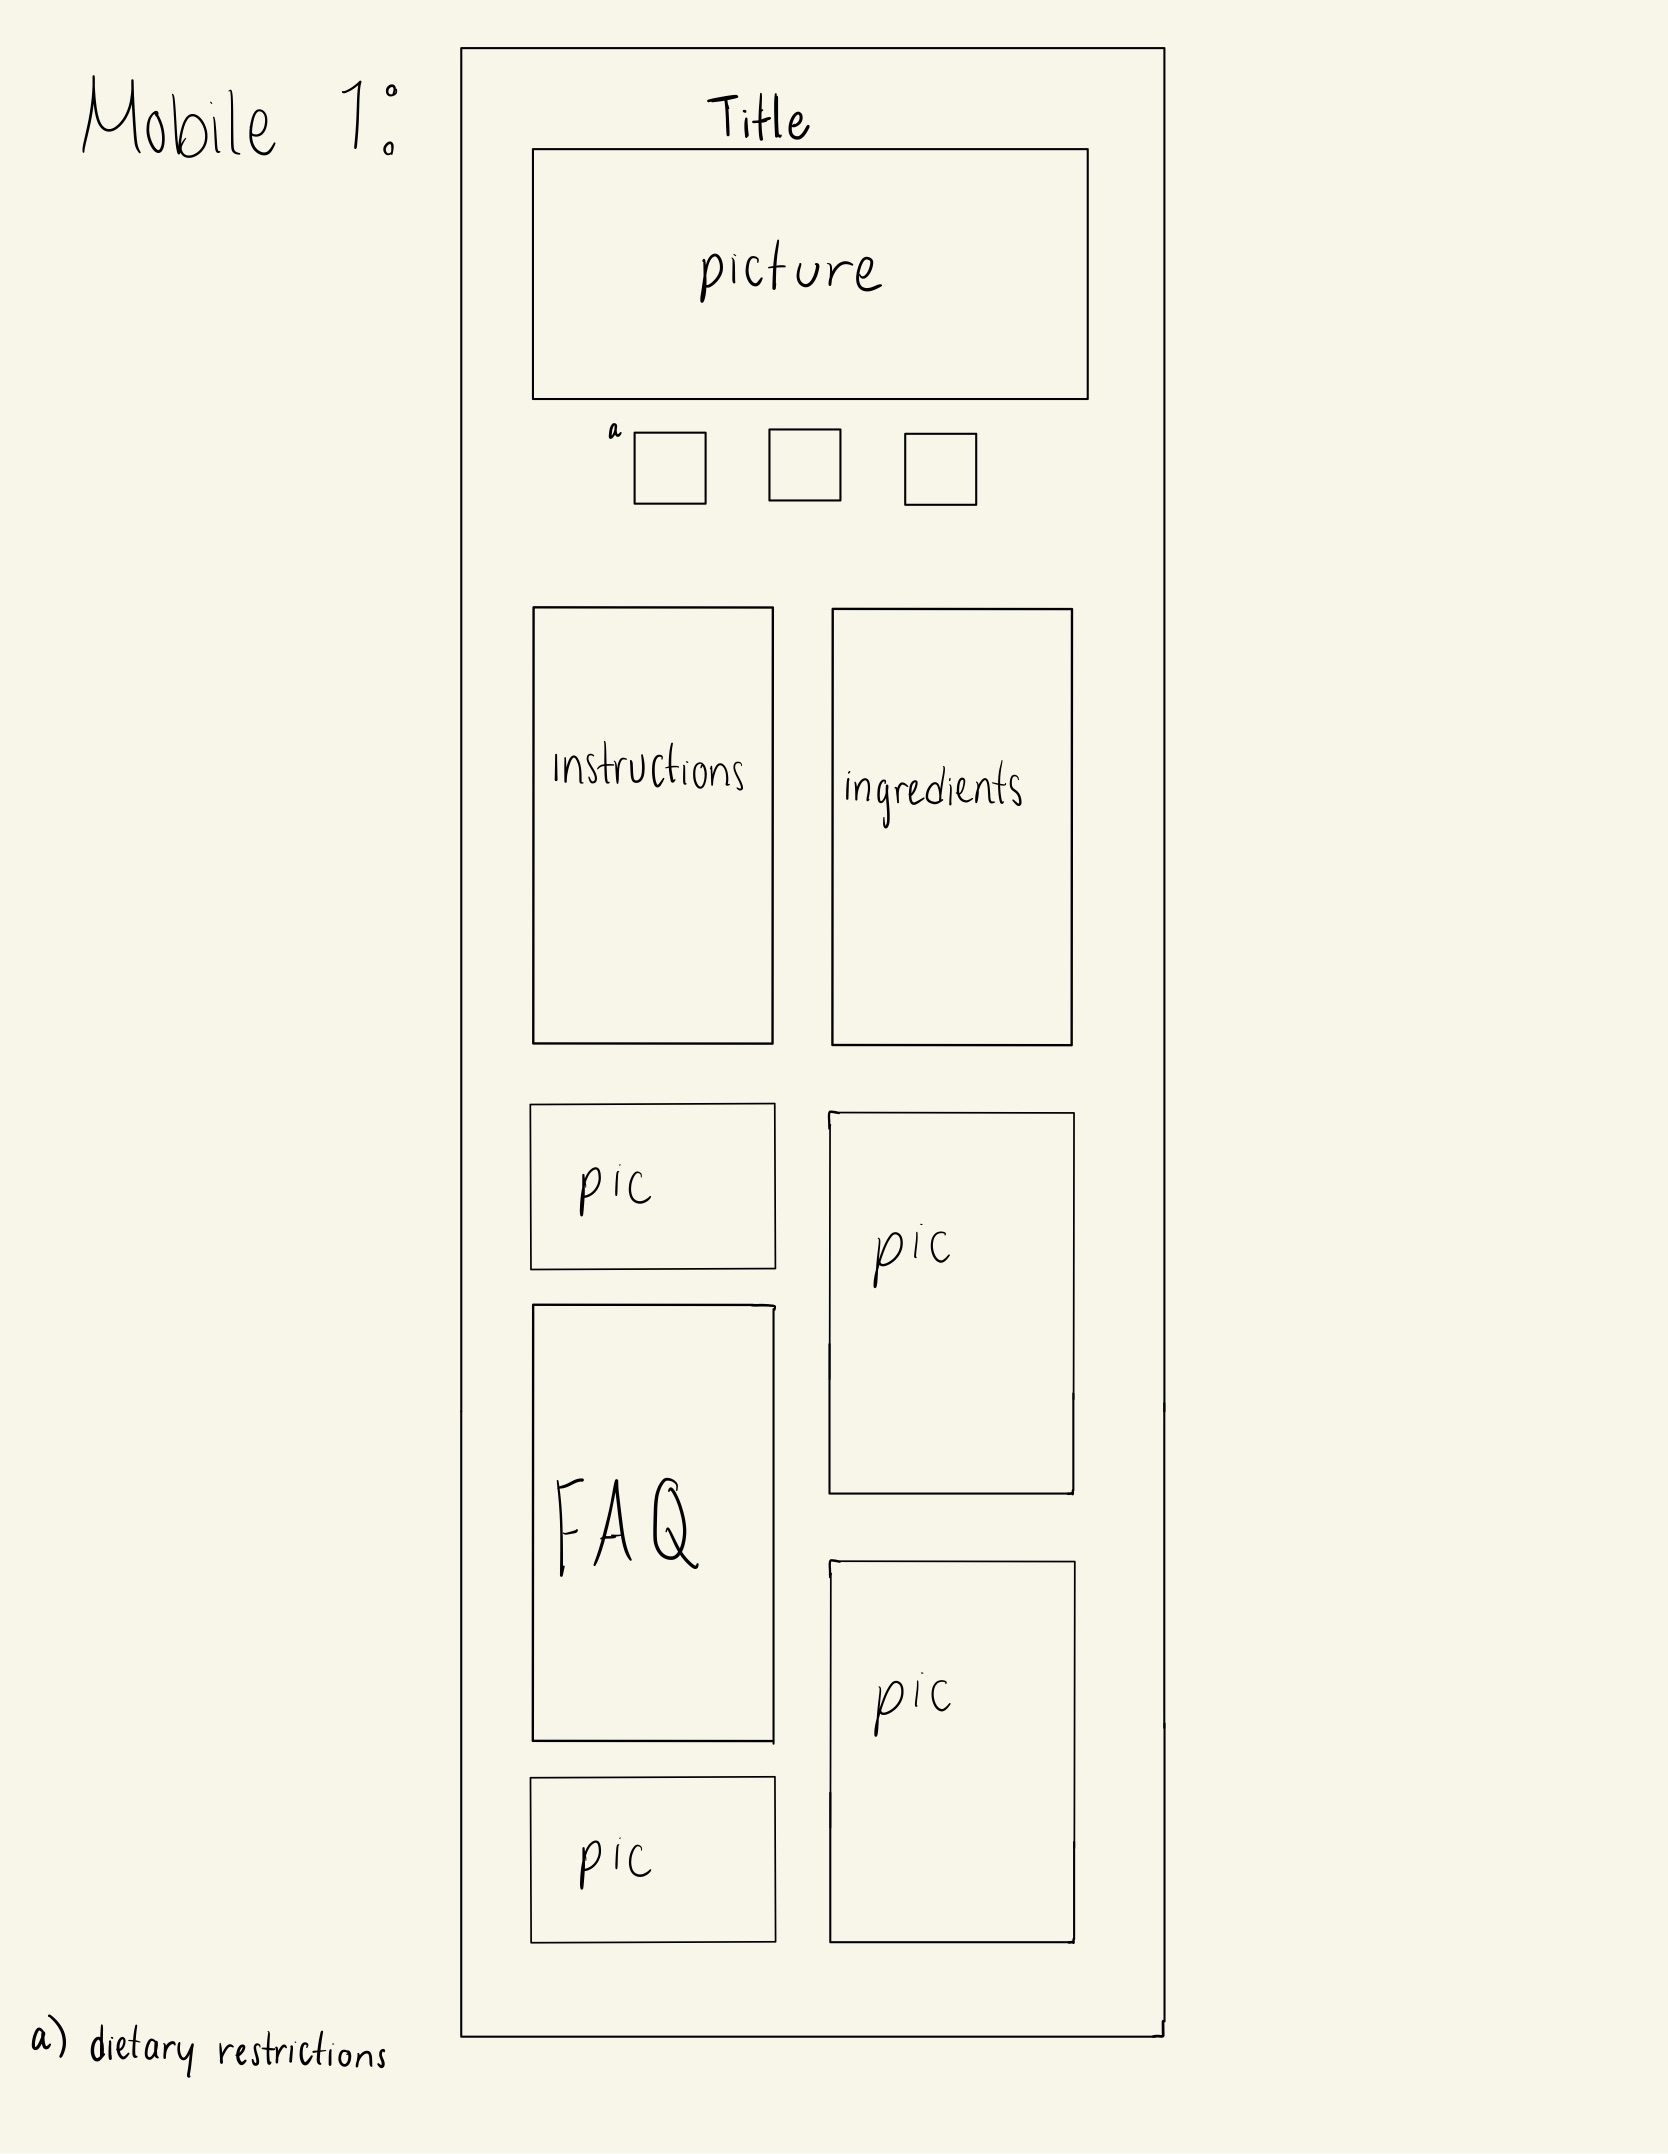 Mobile 1:
Title
picture
a
instructions
ingredients
pic
pic
FAQ
pic
pic
a) dietary restrictions